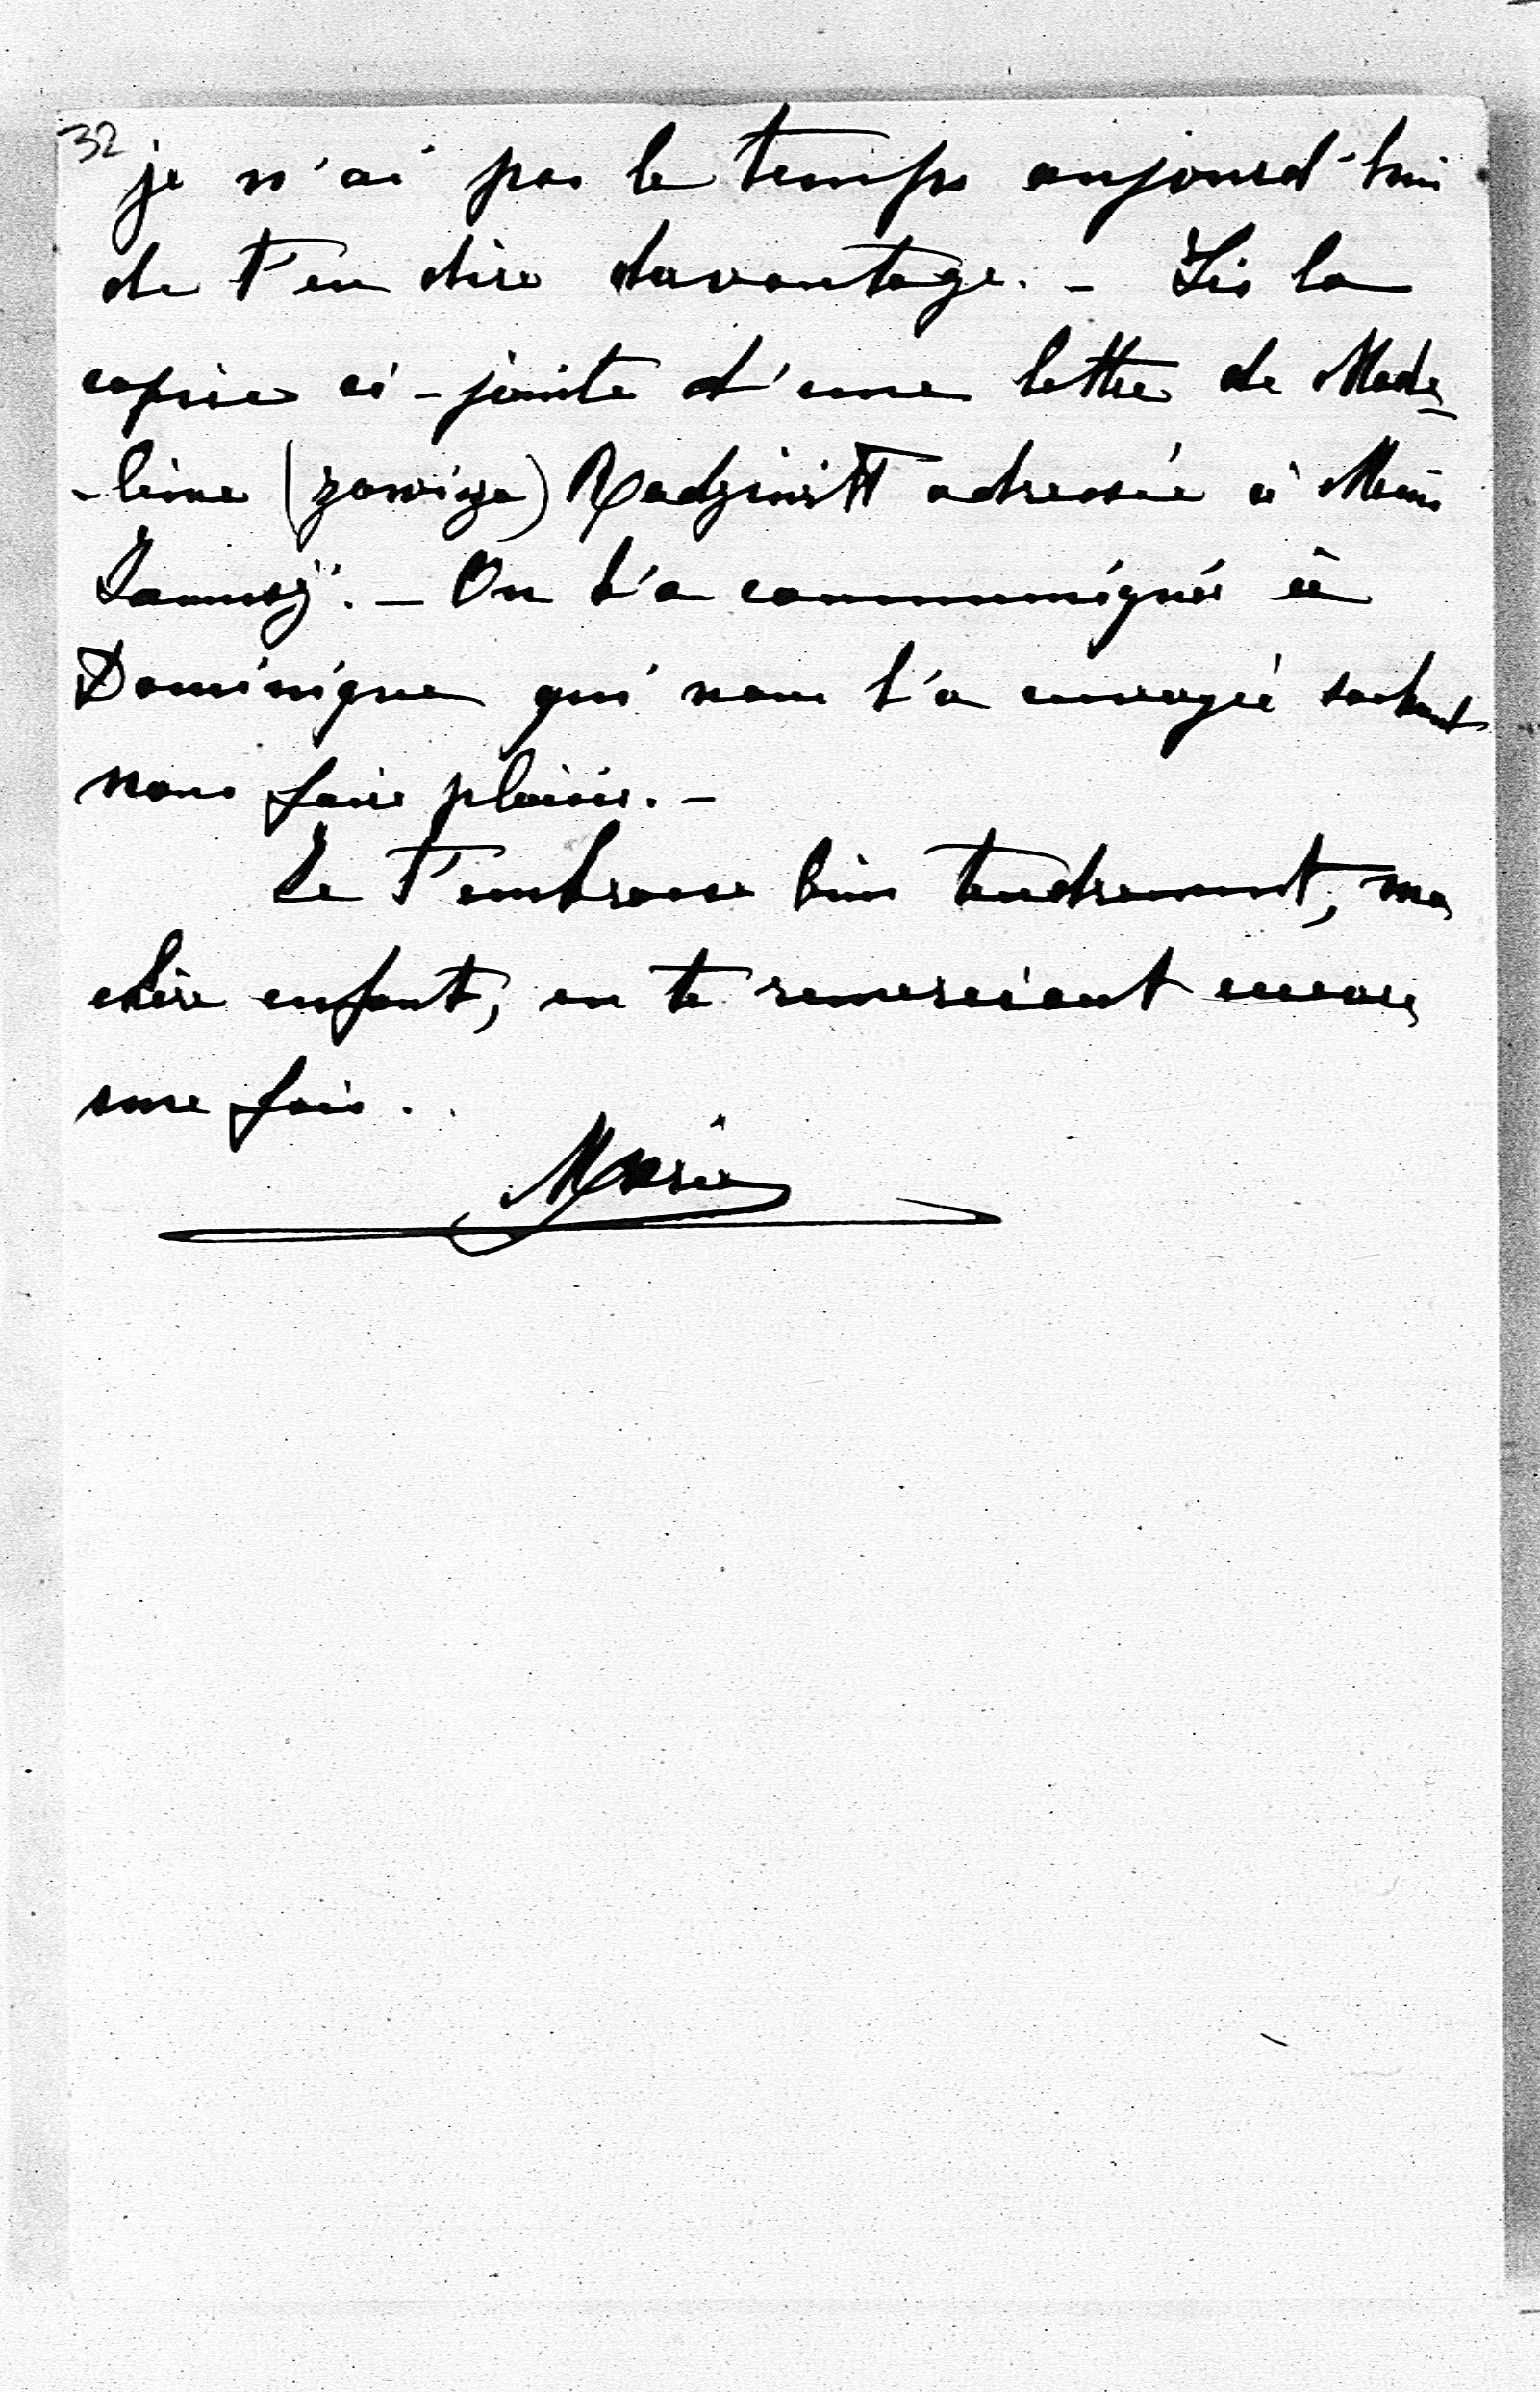 32
je n'ai pas le temps aujourd'hui
de t'en dire davantage. - Lis la
copie ci-jointe d'une lettre de Made-
-leine adressée à
On l'a communiquée à
Dominique qui nous l'a envoyé sachant
nous faire plaisir. -
Je t'embrasse bien tendrement, ma
chère enfant, en te remerciant encore
une fois.
Marie